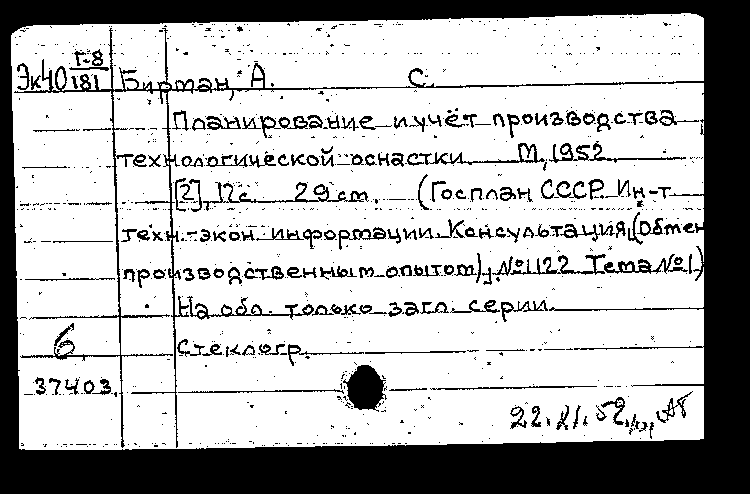 Г-8
Эк40 181 Бирман, А. С.
Планирование и учёт производства
технологической оснастки. М., 1952.
[2], 12 с. 29 см. (Госплан СССР. Ин-т
техн.-экон. информации. Консультация (Обмен
производственным опытом), № 1122 Тема № 1)
На обл. только загл. серии.
6 Стеклогр.
37403.
22.XI.52